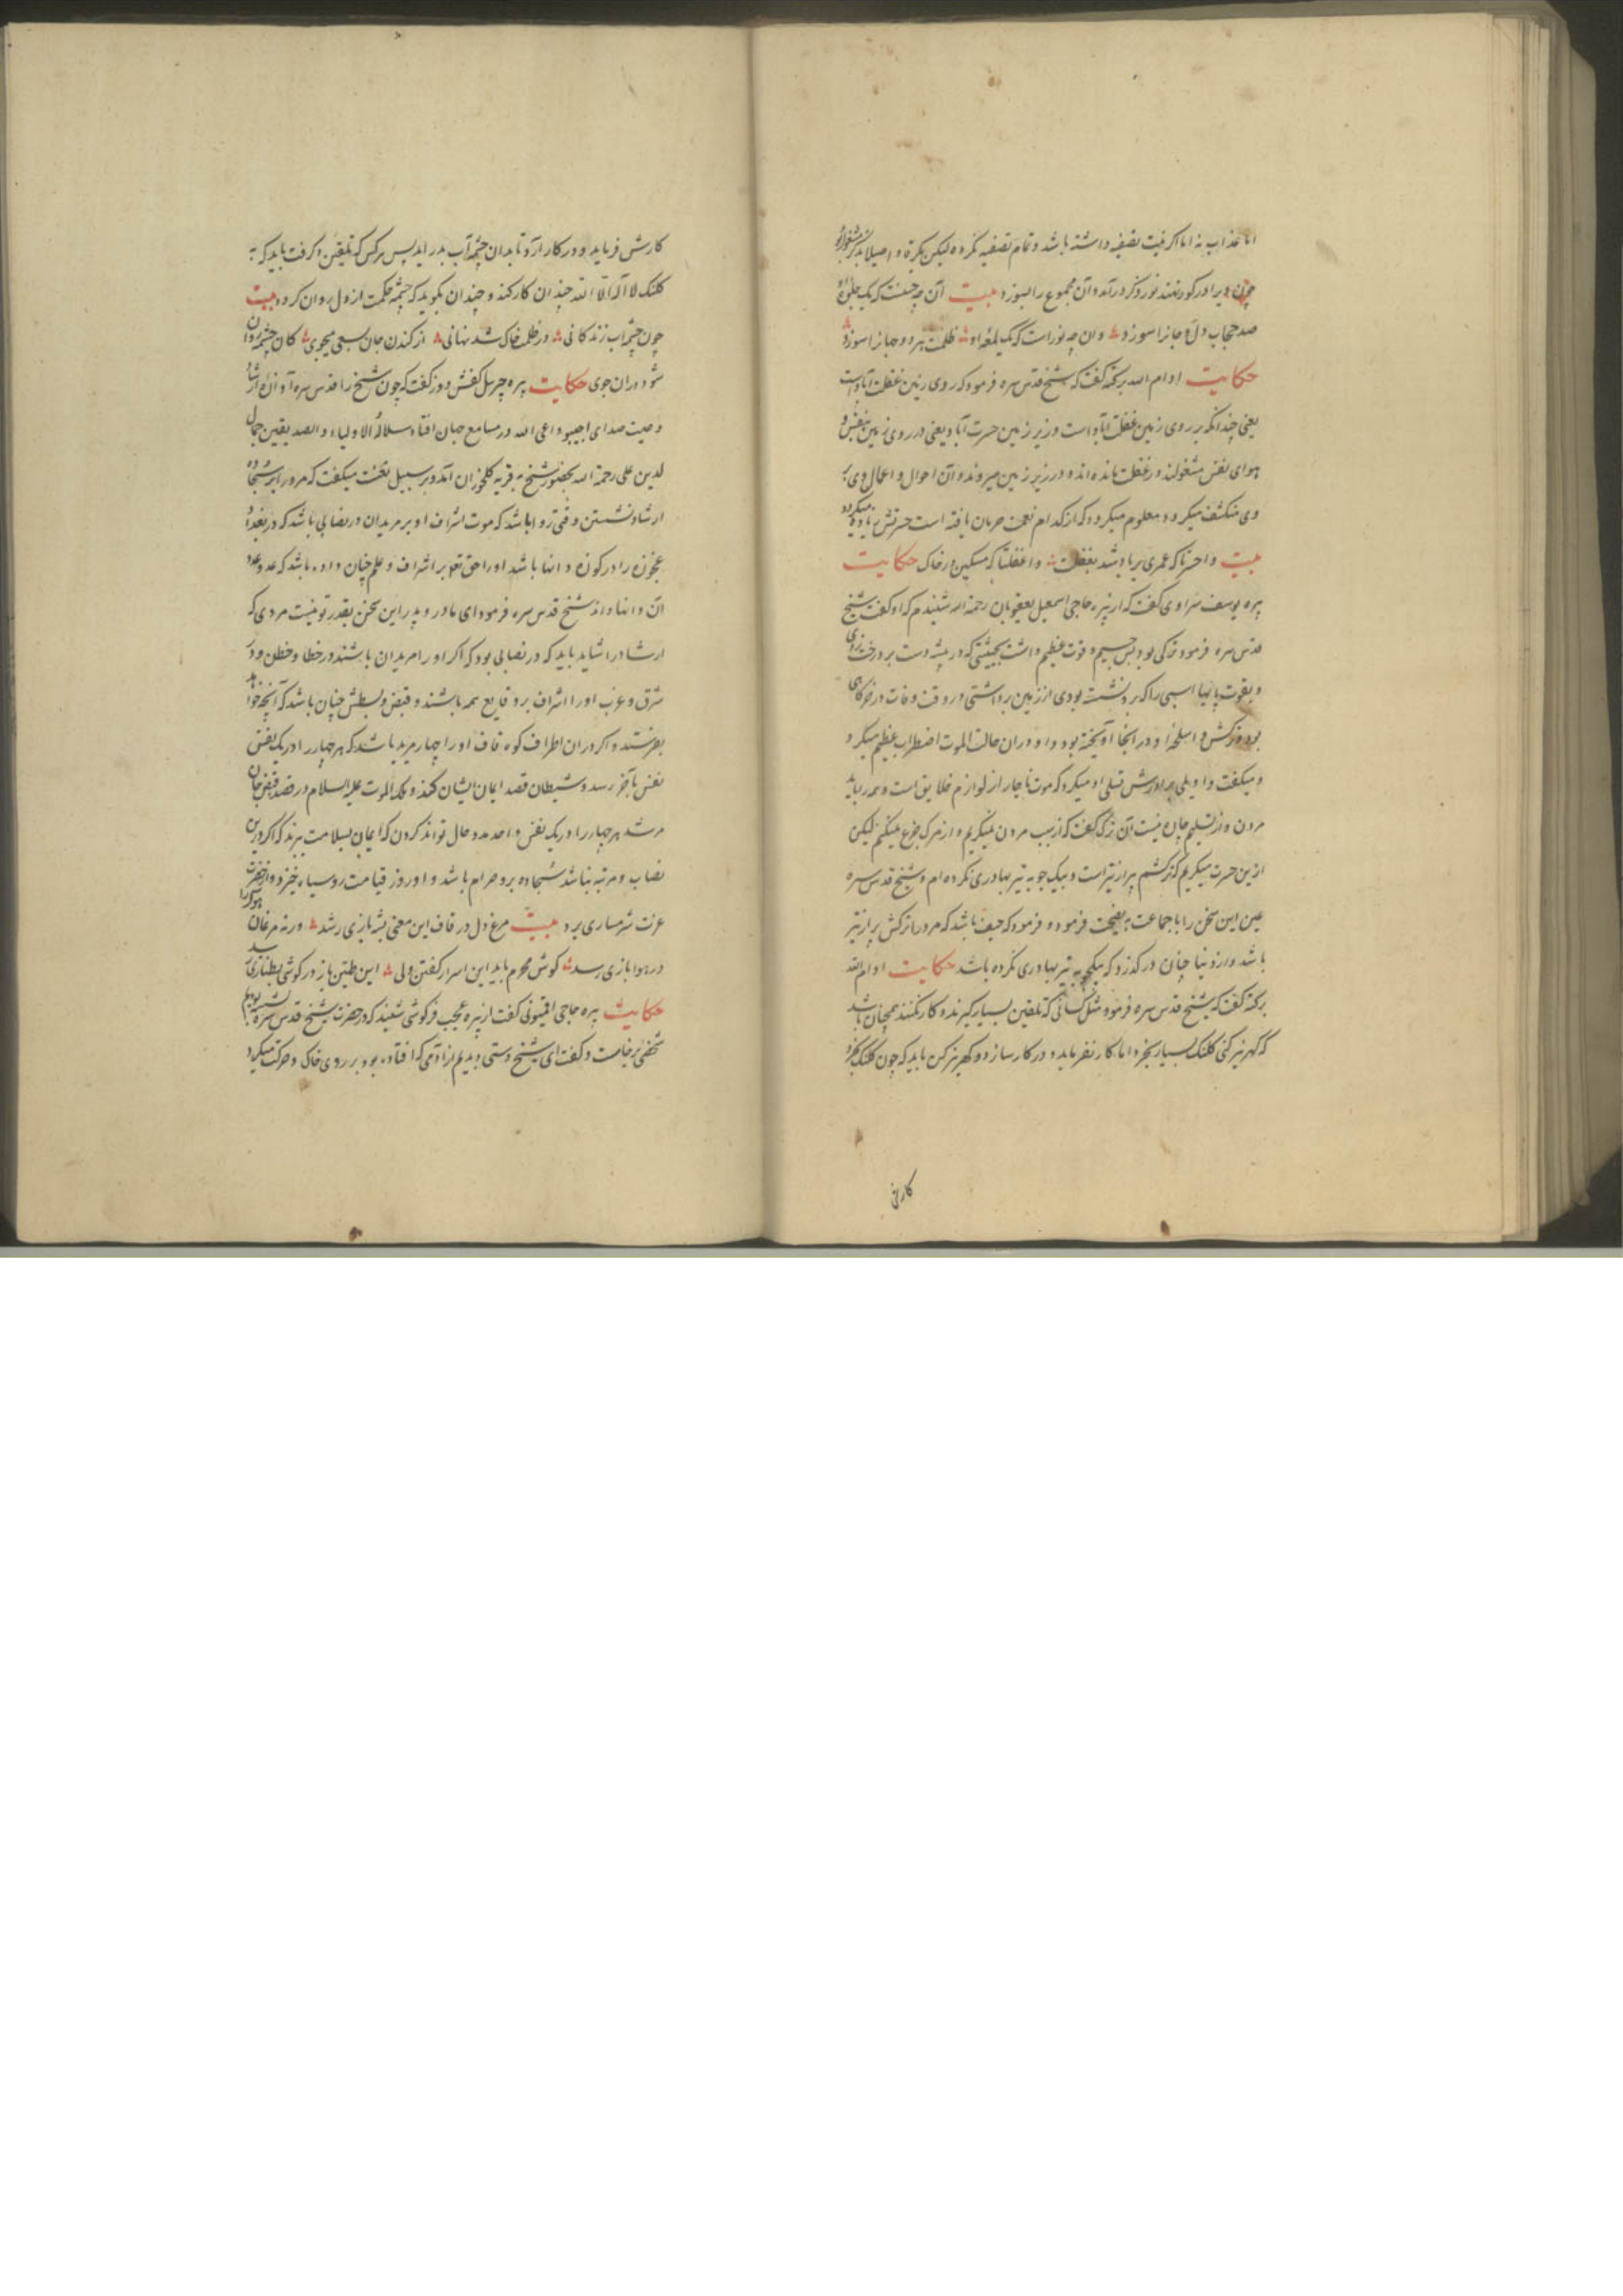 اما عذاب نه اما اگر نیت تصفیه داشته باشد و تمام تصفیه نکرده لیکن بکره و اصیلا بذکر مشغول بود
چون ویرا در گور نهند نور ذکر درآمد و آن مجموع را بسوزد بیت آن چه حسنست که یک جلوه او
صد حجاب دل و جانرا سوزد وان چه نورست که یک لمعه او ظلمت پرده جانرا سوزد
حکایت ادام الله برکته گفت که شیخ قدس سره فرمود که روی زمین غفلت آبادست
یعنی چندانکه بر روی زمین غفلت آباد است و زیر زمین حسرت آباد یعنی در روی زمین بنفس و
هوای نفس مشغولند در غفلت مانده اند و در زیر زمین میروند و آن احوال و اعمال وی بر
وی منکشف میگردد و معلوم میگردد که از کدام نعمت حرمان یافته است حسرتش زیاده میگردد
بیت واحسرتا که عمری بر باد شد بغفلت واغفلتا که مسکین در خاک حکایت
پیره یوسف سراوی گفت که از پیره حاجی اسمعیل یعقوبان رحمة الله شنیدم که او گفت شیخ
قدس سره فرمود ترکی بود بس جسیم و قوت عظیم داشت بحیثتی که در بیشه دست بر درخت زدی
و بقوت پایها اسبی را که بر ونشست بودی از زمین برداشتی در وقت وفات در خرگاهی
بود و ترکش و اسلحه او در انجا آویخته بود و او دران حالت الموت اضطراب عظیم میکرد
و میگفت واویلی برادرش تسلی او میکرد که موت ناچار از لوازم خلایق است و همه را باید
مردن و از تسلیم چاره نیست آن ترک گفت که از سبب مردن نمیگریم و از مرک جزع میکنم لیکن
ازین حسرت میگریم که ترکشم پر از تیر است و بیک چوبه تیر بهادری نکرده ام و شیخ قدس سره
عین این سخن را با جماعت به نصیحت فرمود و فرمود که حیف باشد که مرد را ترکش پر از تیر
باشد و از دنیا چنان درگذرد که بیکچوبه تیر بهادری نکرده باشد حکایت ادام الله
برکته گفت که شیخ قدس سره فرمود مثل کسانی که تلقین بسیار گیرند و کار نکنند همچنان باشد
که کهریز کنی کلنگ بسیار بخرد اما کار نفرماید و در کار سازد و کهریز کن باید که چون کلنگ بخرد
کارش
کارش فرماید و در کار آرد تا بدان چشمه آب بدر اید پس هرکس که تلقین ذکر گرفت باید که به
کلنگ لا اله الا الله چندان کار کند و چندان بگوید که چشمه حکمت از دل روان گردد بیت
چون چشمه آب زندگانی در ظلمت خاک شد نهانی از کندن جان سعی میجوی کان چشمه روان
شود دران جوی حکایت پیره جبرئیل کفش دوز گفت که چون شیخ را قدس سره آوازه ارشاد
وصیت صدای اجیبوا داعی الله در مسامع جهان افتاد سلالة الاولیاء و الصدیقین جمال
الدین علی رحمة الله بحضور شیخ به قریه کلخوران آمد و بر سبیل تعنت میگفت که مرد را بر سجاده
ارشاد نشستن وقتی روا باشد که موت اشراف او بر مریدان در نصابی باشد که در بغداد
عجوزه را در کوزه دانها باشد او را حق تعالی بر اشراف و علم چنان داده باشد که عدد عدد
آن دانها داند شیخ قدس سره فرمود ای مادر و پدر این سخن بقدر تو نیست مردی که
ارشاد را شاید باید که در نصابی بود که اگر او را مریدان باشند در خطا و خطن و در
شرق و غرب او را اشراف بر وقایع همه باشند و قبض و بسطش چنان باشد که آنچه خواهد
بفرستد و اگر دران اطراف کوه قاف او را چهار مرید باشد که هر چهار را در یک نفس
نفس بآخر رسد و شیطان قصد ایمان ایشان کند و ملک الموت علیه السلام در قصد قبض جان
مرشد هر چهار را در یک نفس واحد مدد حال تواند کردن که ایمان بسلامت برند که اگر درین
نصاب و مرتبه نباشد سجاده برو حرام باشد و او روز قیامت روسیاه خیزد و از حضرت
عزت شرمساری برد بیت مرغ دل در قاف این معنی بشه بازی رشد ورنه مرغان هوا را
در هوا بازی رسد گوش محرم باید این اسرار گفتن ولی این طنین باز در گوشی بطنازی رسد
حکایت پیره حاجی افتیونی گفت از پیره نجیب فرگوشی شنیدم که در حضرت شیخ قدس سره نشسته بودیم
شخصی برخاست و گفت ای شیخ دستی دیدیم از آدمی که افتاده بود بر روی خاک و حرکت میکرد